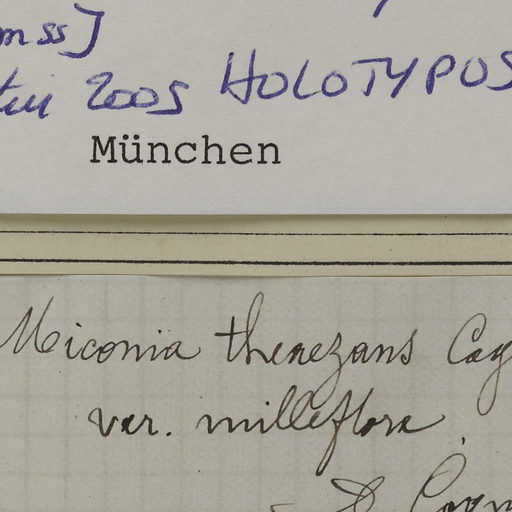 mss]
2005 HOLOTYPUS
München
Miconia theaezans Cog
var. milleflora